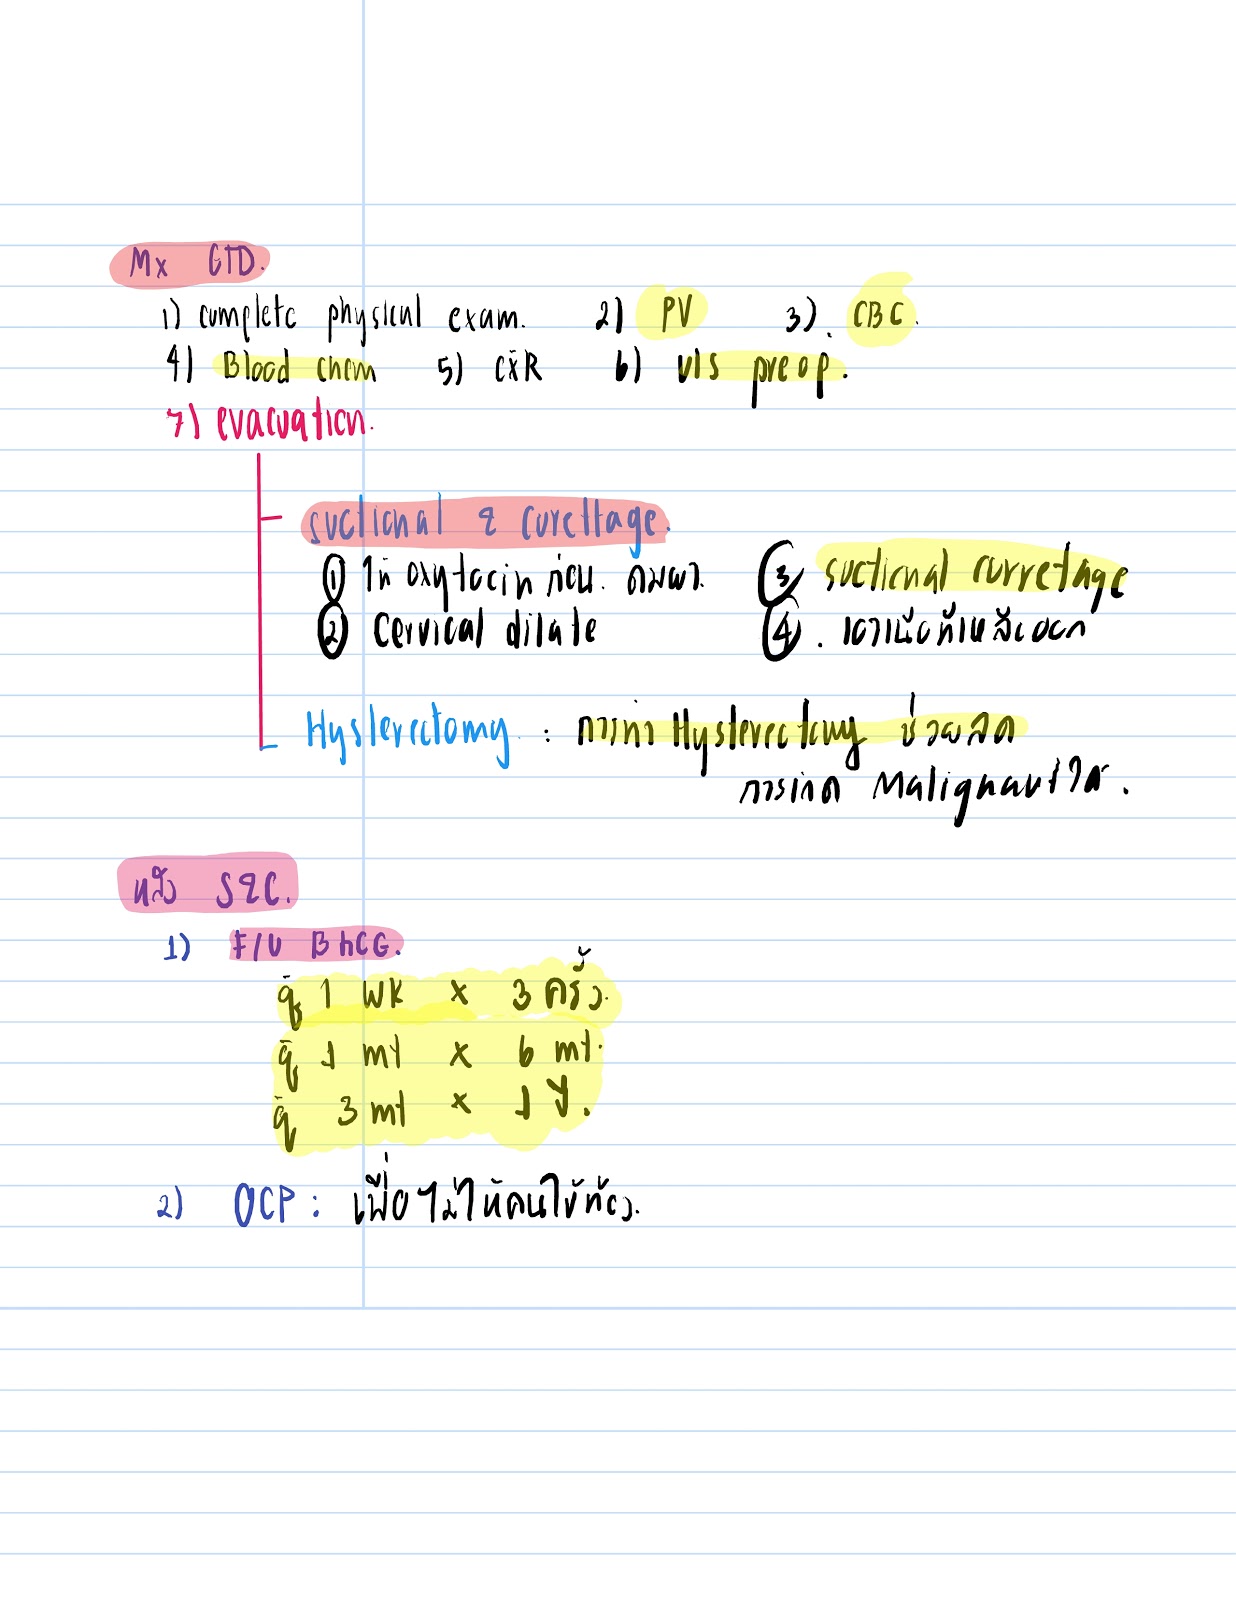 Mx GTD.
1) complete physical exam. 2) PV 3). CBC.
4) Blood chem 5) CXR 6) U/S preop.
7) evacuation.
suctional & curettage.
① ให้ oxytocin ก่อน. ดมยา. ③ suctional curretage
② cervical dilate ④. เอาเนื้อที่เหลือออก
Hysterectomy : การทำ Hysterectomy ช่วยลด
การเกิด Malignant ได้.
หลัง S&C.
1) F/U BhCG.
q 1 wk x 3 ครั้ง.
q 1 mt x 6 mt.
q 3 mt x 1 ปี.
2) OCP : เพื่อไม่ให้คนไข้ท้อง.